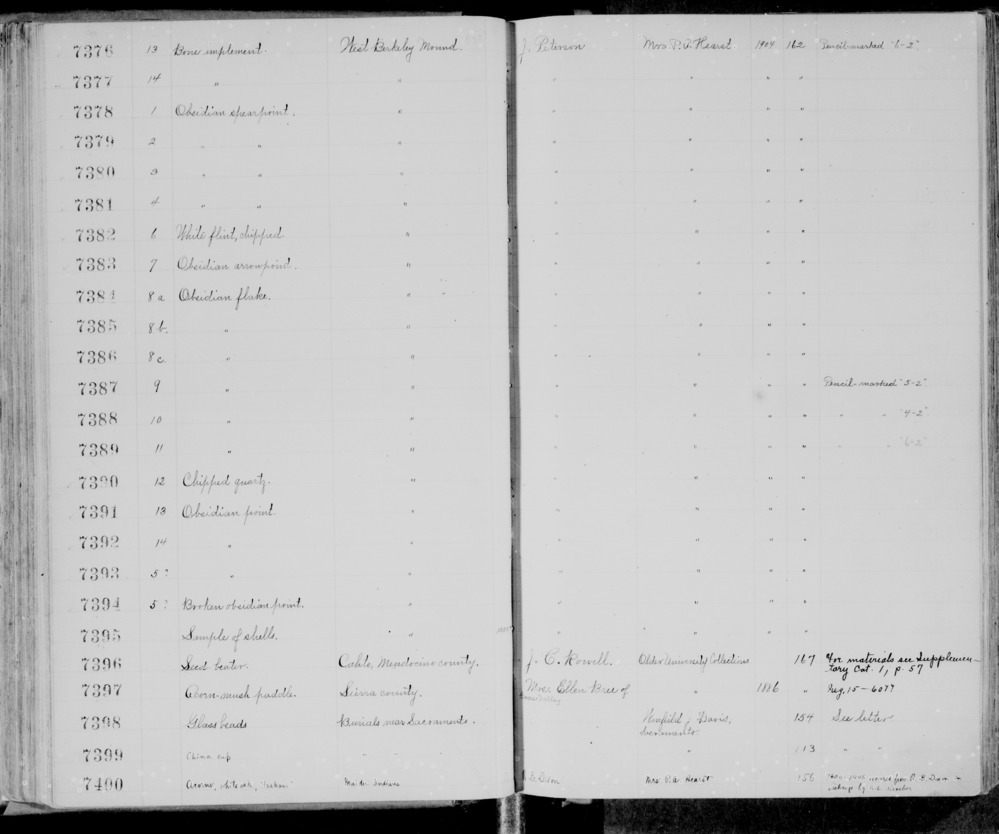 7376 13 Bone implement. West Berkeley Mound. J. Peterson Mrs P. A. Hearst. 1904 162 Pencil-marked "6-2"
7377 14 " " " " " "
7378 1 Obsidian spearpoint. " " " " "
7379 2 " " " " " " "
7380 3 " " " " " " "
7381 4 " " " " " " "
7382 6 White flint, chipped " " " " "
7383 7 Obsidian arrowpoint. " " " " "
7384 8a Obsidian flake. " " " " "
7385 8b. " " " " " "
7386 8c. " " " " " "
7387 9 " " " " " " Pencil-marked "5-2"
7388 10 " " " " " " " " "4-2"
7389 11 " " " " " " " " "6-2"
7390 12 Chipped quartz. " " " " "
7391 13 Obsidian point. " " " " "
7392 14 " " " " " "
7393 5? " " " " " "
7394 5? Broken obsidian point. " " " " "
7395 Sample of shells. " " " " "
7396 Seed beater. Cahto, Mendocino county. J. C. Rowell. Older University Collections 167 For materials see Supplemen-
tary Cat. 1, p. 57
7397 Acorn-mush paddle. Sierra county. Ellen Bree of " 1886 " Reg. 15-6077
7398 Glass beads Burials near Sacramento. Winfield J. Davis, 154 See letter
Sacramento
7399 China cup " " " 113 " "
7400 Acorns, white oak, Maidu Indians Dixon Mrs P. A. Hearst 156